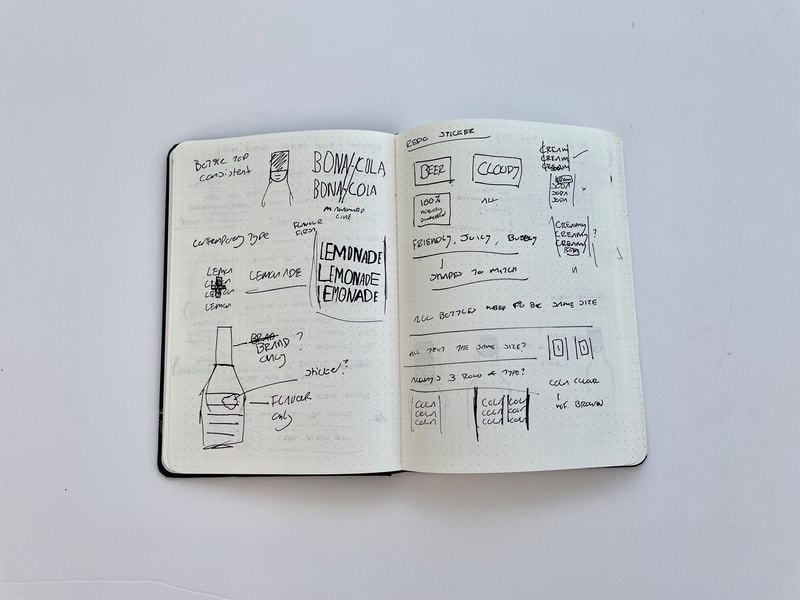 BOTTLE TOP
CONSISTENT
BONA-COLA
BONA-COLA
LINE
CONTEMPORARY TYPE
FLAVOUR
FIRST
LEMON
LEMON
LEMON
LEMON
LEMONADE
LEMONADE
LEMONADE
LEMONADE
BRAND ?
ONLY
STICKER?
FLAVOUR
ONLY
REDO STICKER
BEER
CLOUDY
100%
ALL
FRIENDLY, JUICY, BUBBLY
SHAPES TO MATCH
CREAM
CREAM
CREAM
SODA
SODA
SODA
CREAMY
CREAMY
CREAMY
?
ALL BOTTLES NEED TO BE SAME SIZE
ALL TEXT THE SAME SIZE?
ALWAYS 3 ROWS OF TYPE?
COLA
COLA
COLA
COLA COLA
COLA COLA
COLA COLA
COLA CLEAR
NOT BROWN